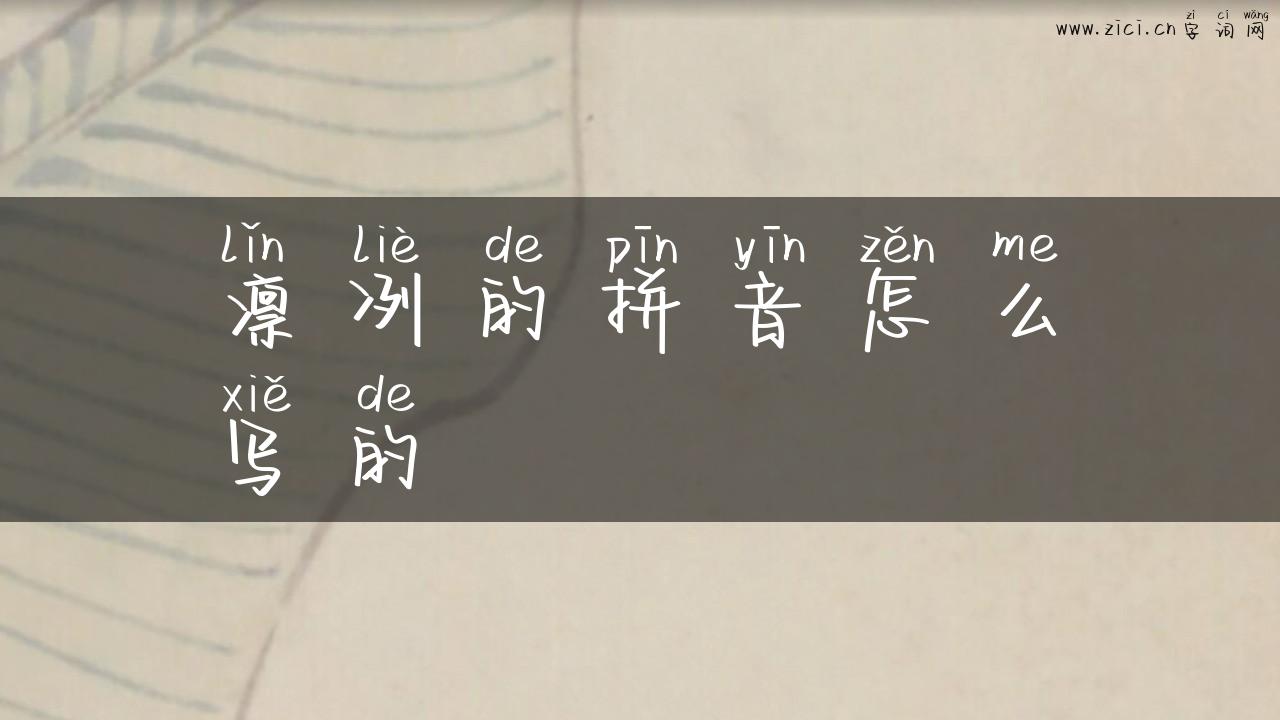 zì cí wǎng
www.zici.cn 字词网
lǐn liè de pīn yīn zěn me
凛冽的拼音怎么
xiě de
写的